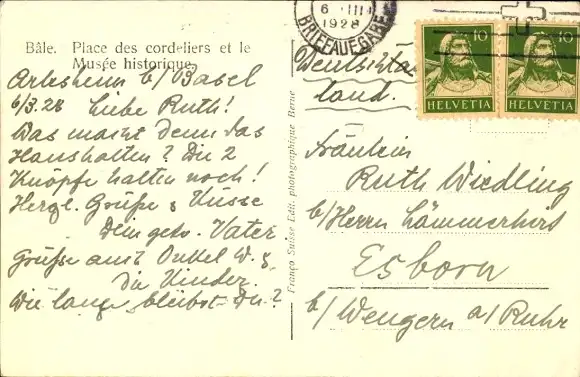 Bâle. Place des cordeliers et le
Musée historique.
Arlesheim b/Basel
6/3.28 Liebe Ruth!
Was macht denn das
Haushalten? Die 2
Knöpfe halten noch!
Herzl. Grüße & Küsse
Dein getr. Vater
Grüsse an Onkel W. &
die Kinder.
Wie lange bleibst Du?
Franco Suisse Edit. photographique Berne
6 III
1928
BRIEFAUFGABE
10
HELVETIA
10
HELVETIA
Deutschland.
Fräulein
Ruth Wiedling
b/Herrn Lämmerhirt
Esborn
b/ Wengern a/ Ruhr